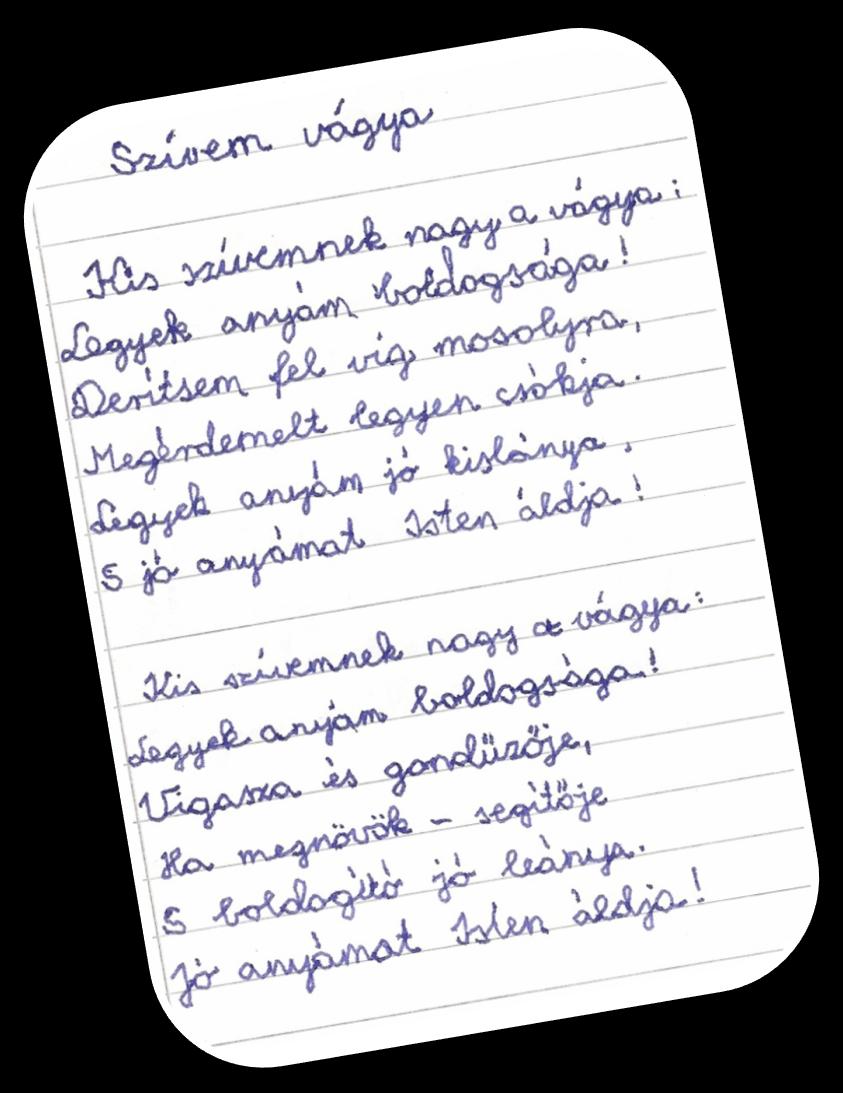 Szívem vágya
Kis szívemnek nagy a vágya:
Legyek anyám boldogsága!
Derítsem fel víg mosolyra,
Megérdemelt legyen csókja.
Legyek anyám jó kislánya,
S jó anyámat Isten áldja!
Kis szívemnek nagy a vágya:
Legyek anyám boldogsága!
Vigasza és gondűzője,
Ha megnövök - segítője
S boldogító jó leánya.
Jó anyámat Isten áldja!